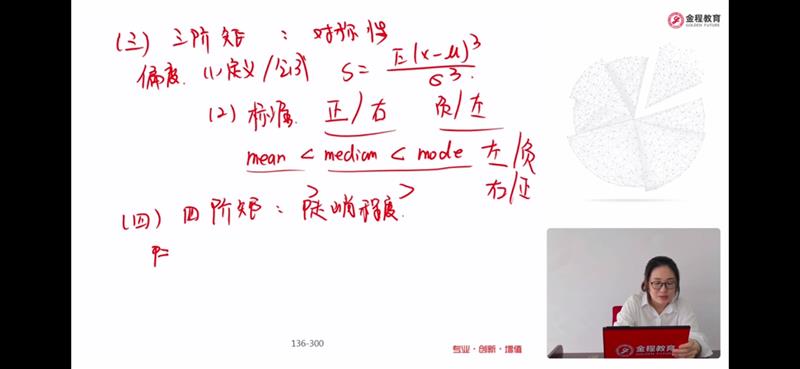 金程教育
GOLDEN FUTURE
(三) 三阶矩 : 对称性
偏度. (1) 定义/公式 S = E(x-μ)³ / σ³
(2) 标准 正/右 负/左
mean < median < mode 左/负
> > 右/正
(四) 四阶矩 : 陡峭程度.
136-300
专业·创新·增值
金程教育
GOLDEN FUTURE